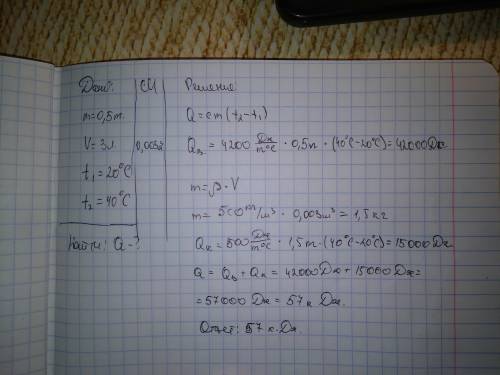 Дано:
m=0,5т.
V=3л.
t₁=20°C
t₂=40°C
Найти: Q-?
СИ
0,003м³
Решение:
Q=cm(t₂-t₁)
Qв = 4200 Дж/т°C · 0,5т · (40°C-20°C)=42000Дж
m=ρ·V
m= 500 т/м³ · 0,003м³ = 1,5 кг
Qк = 500 Дж/т°C · 1,5т·(40°C-20°C)=15000Дж
Q = Qв + Qк = 42000Дж+15000Дж=
=57000 Дж = 57к Дж.
Ответ: 57 к.Дж.